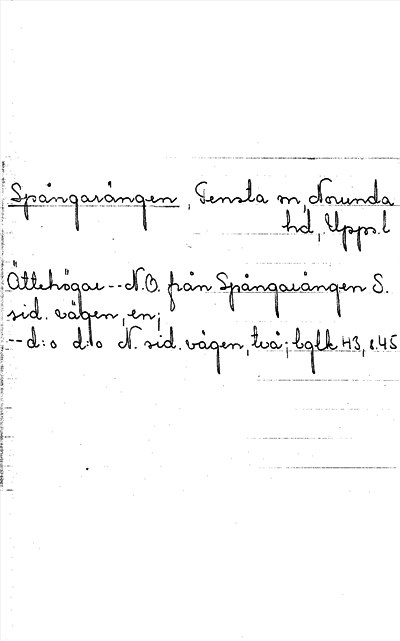 Spångarången, Tensta sn, Norunda
hd, Upps.l
Ättehögar -- N.O. från Spångarången S.
sid. vägen, en;
-- d:o d:o N. sid. vägen, två; bglk 43, s.45